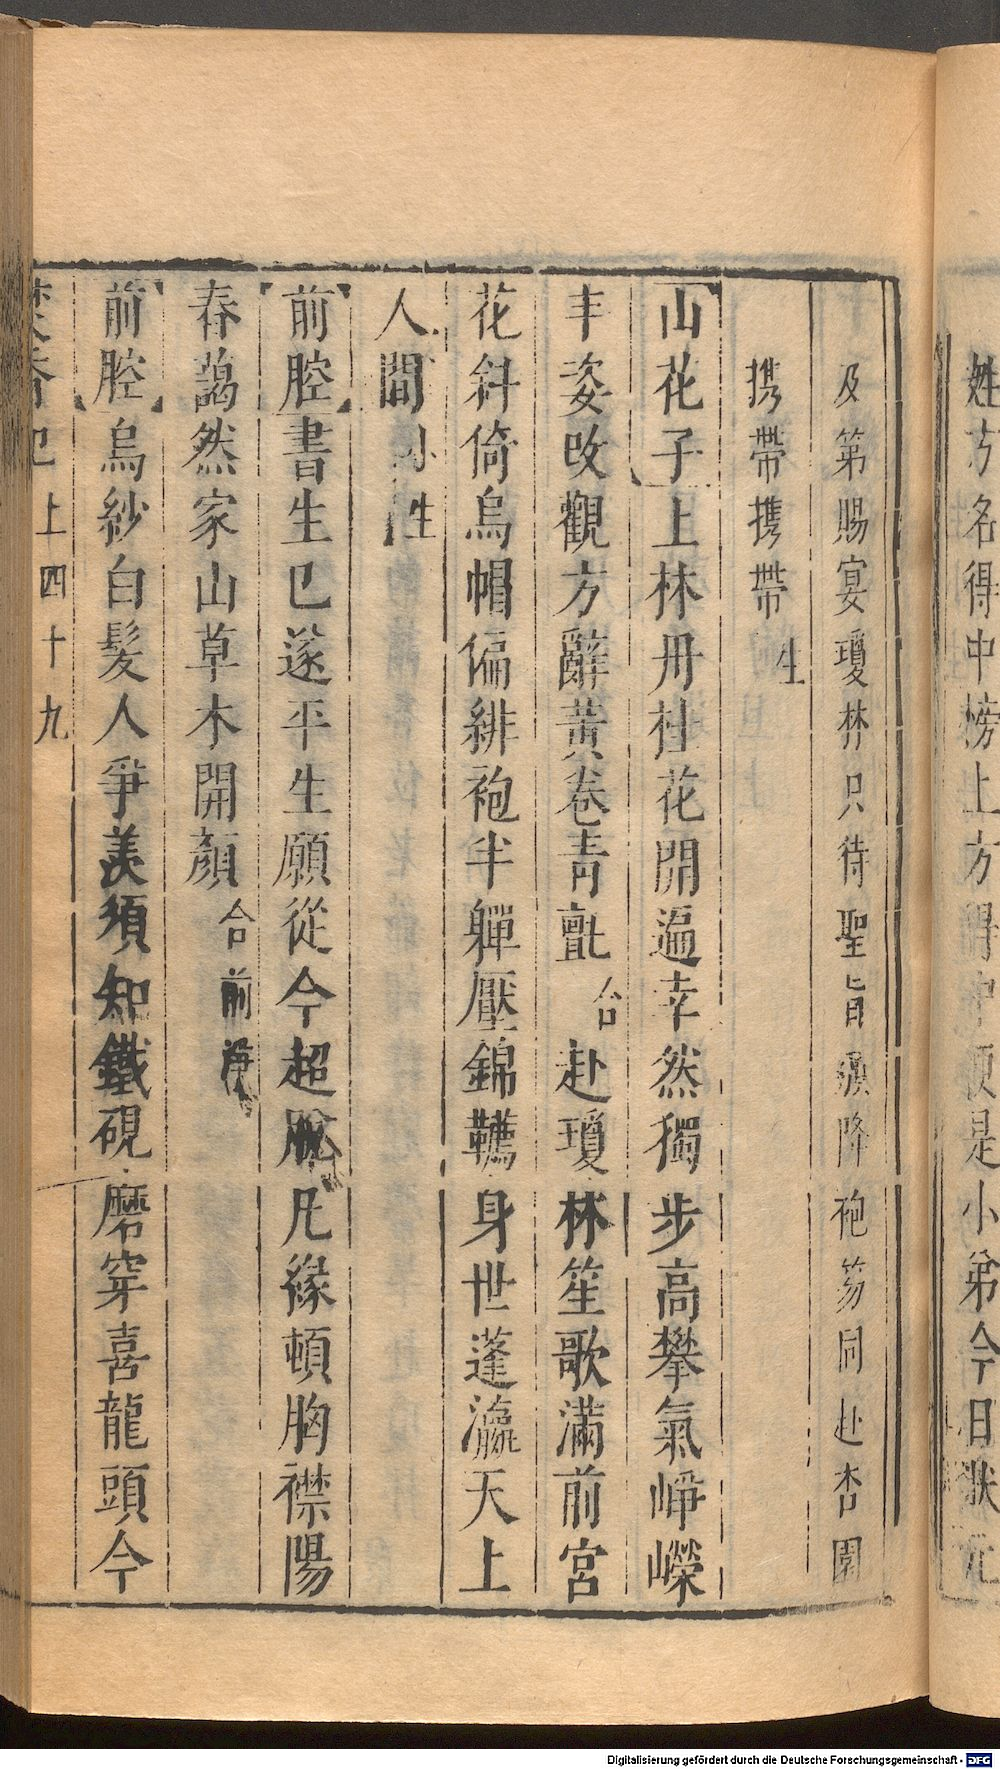 姓方名得中榜上方得中便是小弟今日狀元
及第賜宴瓊林只待聖旨頒降袍笏同赴杏園
携帶携帶生
山花子上林丹桂花開遍幸然獨步高攀氣崢嶸
丰姿改觀方辭黃卷青氊合赴瓊林笙歌滿前宮
花斜倚烏帽偏緋袍半軃壓錦韉身世蓬瀛天上
人間小生
前腔書生已遂平生願從今超脫凡緣頓胸襟陽
春藹然家山草木開顏合前淨
前腔烏紗白髮人爭羨須知鐵硯磨穿喜龍頭今
上四十九
Digitalisierung gefördert durch die Deutsche Forschungsgemeinschaft - DFG